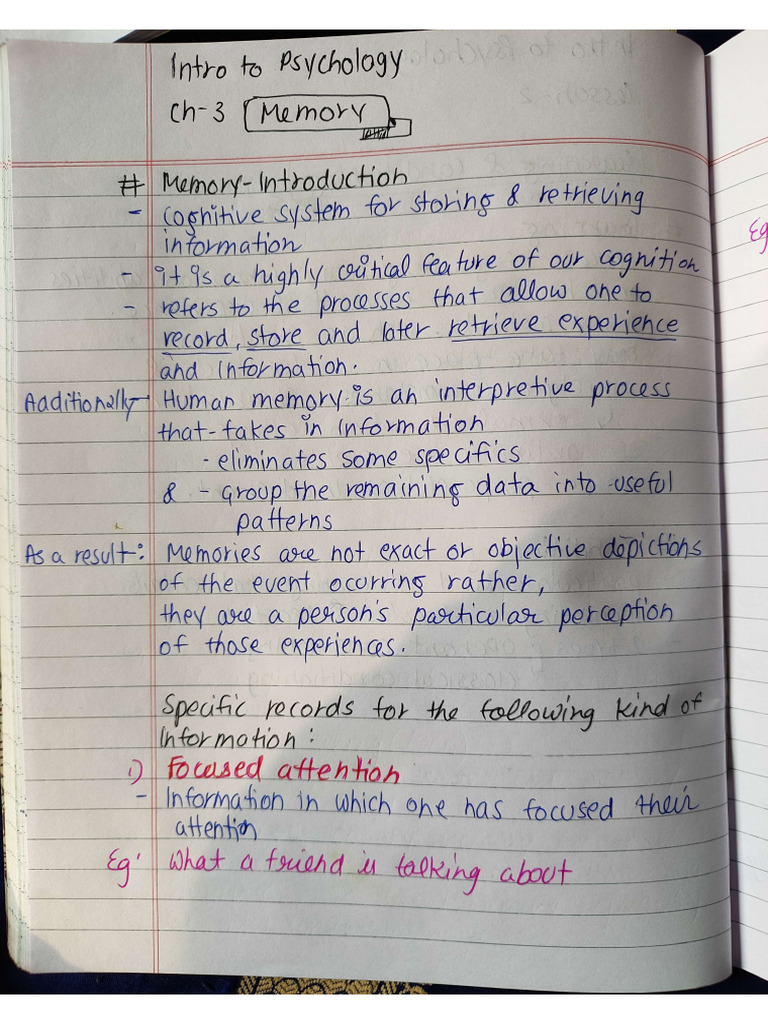 Intro to Psychology
Ch-3 Memory
# Memory-Introduction
- Cognitive system for storing & retrieving
information
- it is a highly critical feature of our cognition
- refers to the processes that allow one to
record, store and later retrieve experience
and information.
Additionally- Human memory is an interpretive process
that takes in information
- eliminates some specifics
& - group the remaining data into useful
patterns
As a result: Memories are not exact or objective depictions
of the event ocurring rather,
they are a person's particular perception
of those experiences.
Specific records for the following kind of
Information:
1) Focused attention
- Information in which one has focused their
attention
Eg: What a friend is talking about
Eg